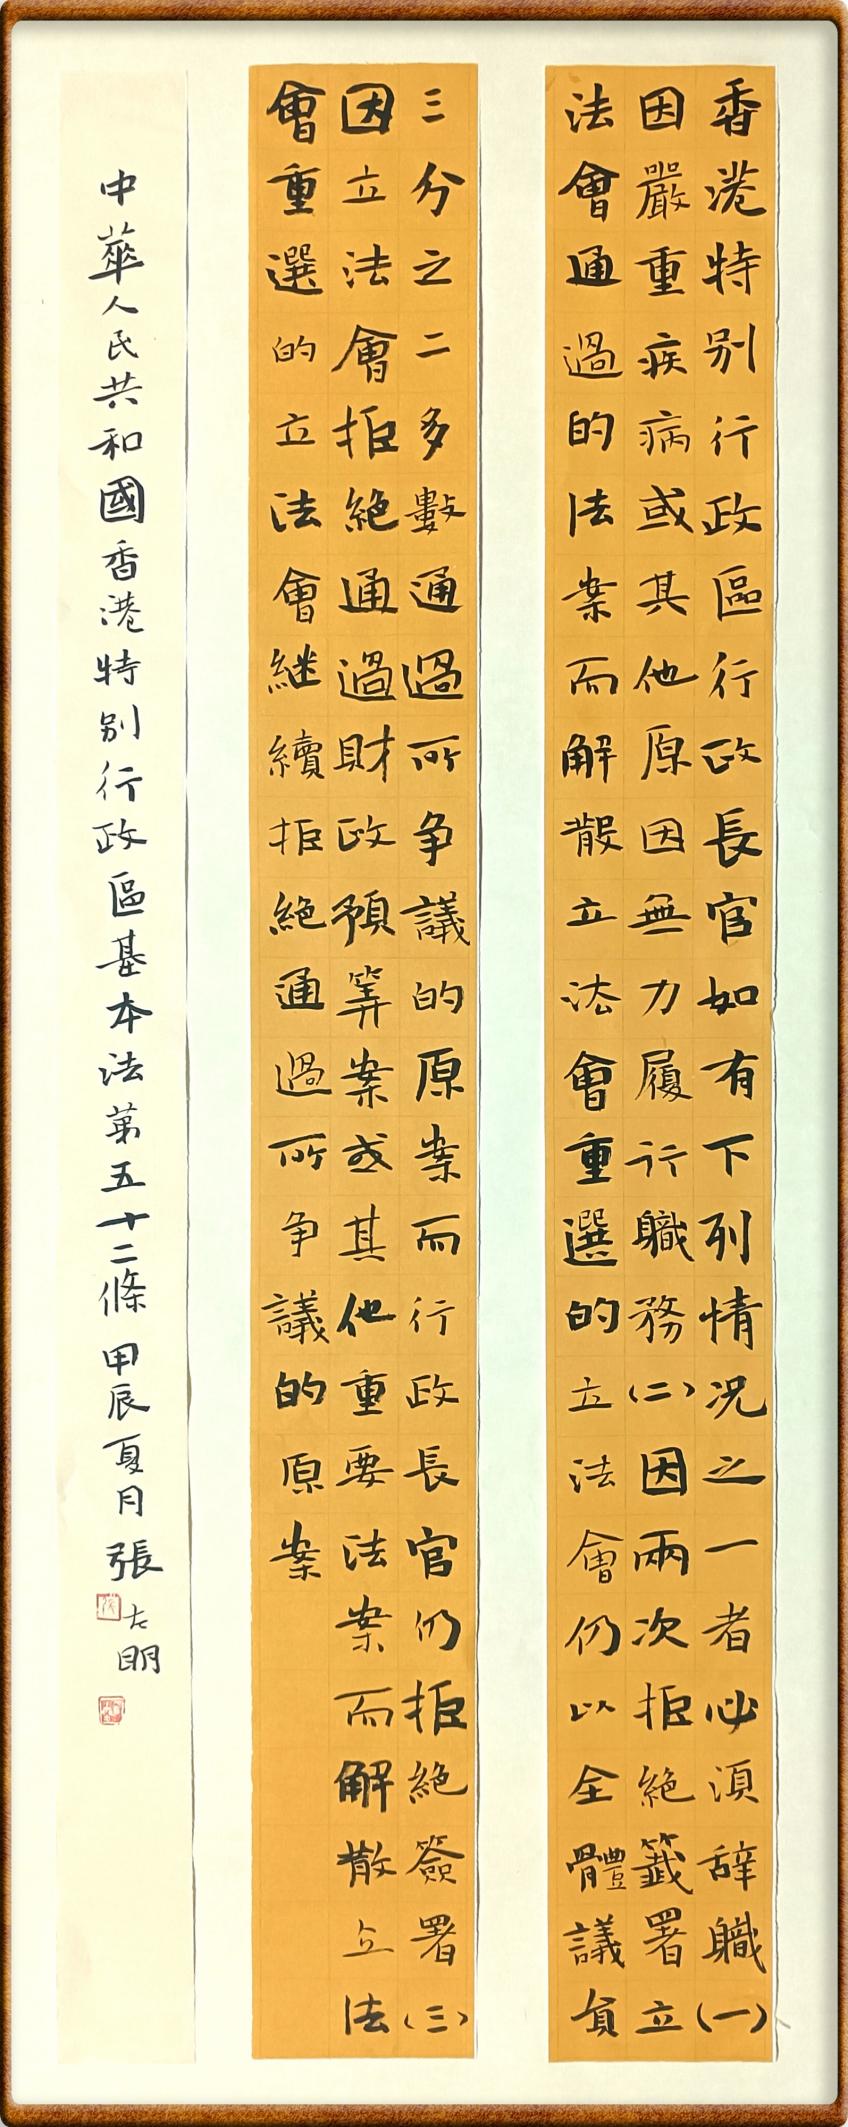 香港特别行政區行政長官如有下列情况之一者必須辞職(一)
因嚴重疾病或其他原因無力履行職務(二)因兩次拒絶籤署立
法會通過的法案而解散立法會重選的立法會仍以全體議員
三分之二多數通過所争議的原案而行政長官仍拒絶簽署(三)
因立法會拒絶通過財政預筭案或其他重要法案而解散立法
會重選的立法會継續拒絶通過所争議的原案
中華人民共和國香港特别行政區基本法第五十二條 甲辰夏月 張左明